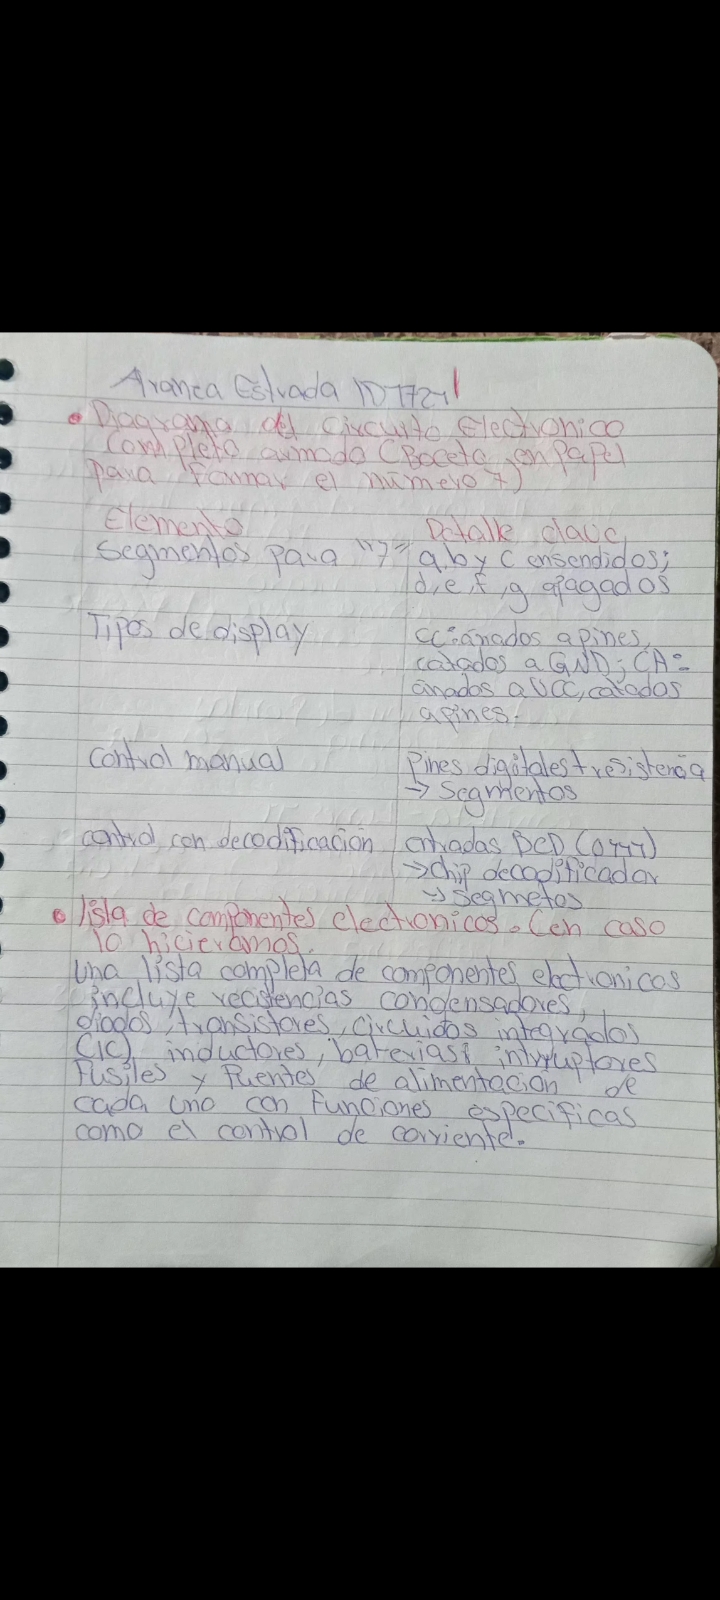 Aranca Estrada ID 1721
• Diagrama del Circuito Electronico
Completo armado (Boceto en Papel
para formar el número 7)
Elemento Detalle clave
Segmentos para "7" a, b y c ensendidos;
d, e, f, g apagados
Tipos de display CC: ánados a pines,
catados a GND; CA=
ánados a VCC, catados
a pines.
control manual Pines digitales + resistencia
→ Segmentos
control con decodificación entradas BCD (0111)
→ chip decodificador
→ Segmetos
• lista de componentes electronicos. (en caso
lo hicieramos.
una lista completa de componentes electronicos
incluye recistencias condensadores,
diodos, transistores, circuidos integrados
(IC), inductores, baterias, intrruptores
Fusiles y Fuentes de alimentación de
cada uno con Funciones especificas
como el control de corriente.